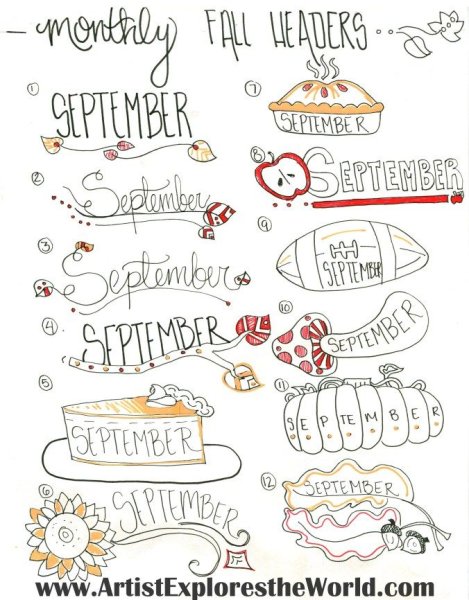 monthly FALL HEADERS
1
SEPTEMBER
2
September
3
September
4
SEPTEMBER
5
SEPTEMBER
6
SEPTEMBER
7
SEPTEMBER
8
SEPTEMBER
9
SEPTEMBER
10
SEPTEMBER
11
SEPTEMBER
12
SEPTEMBER
www.ArtistExplorestheWorld.com